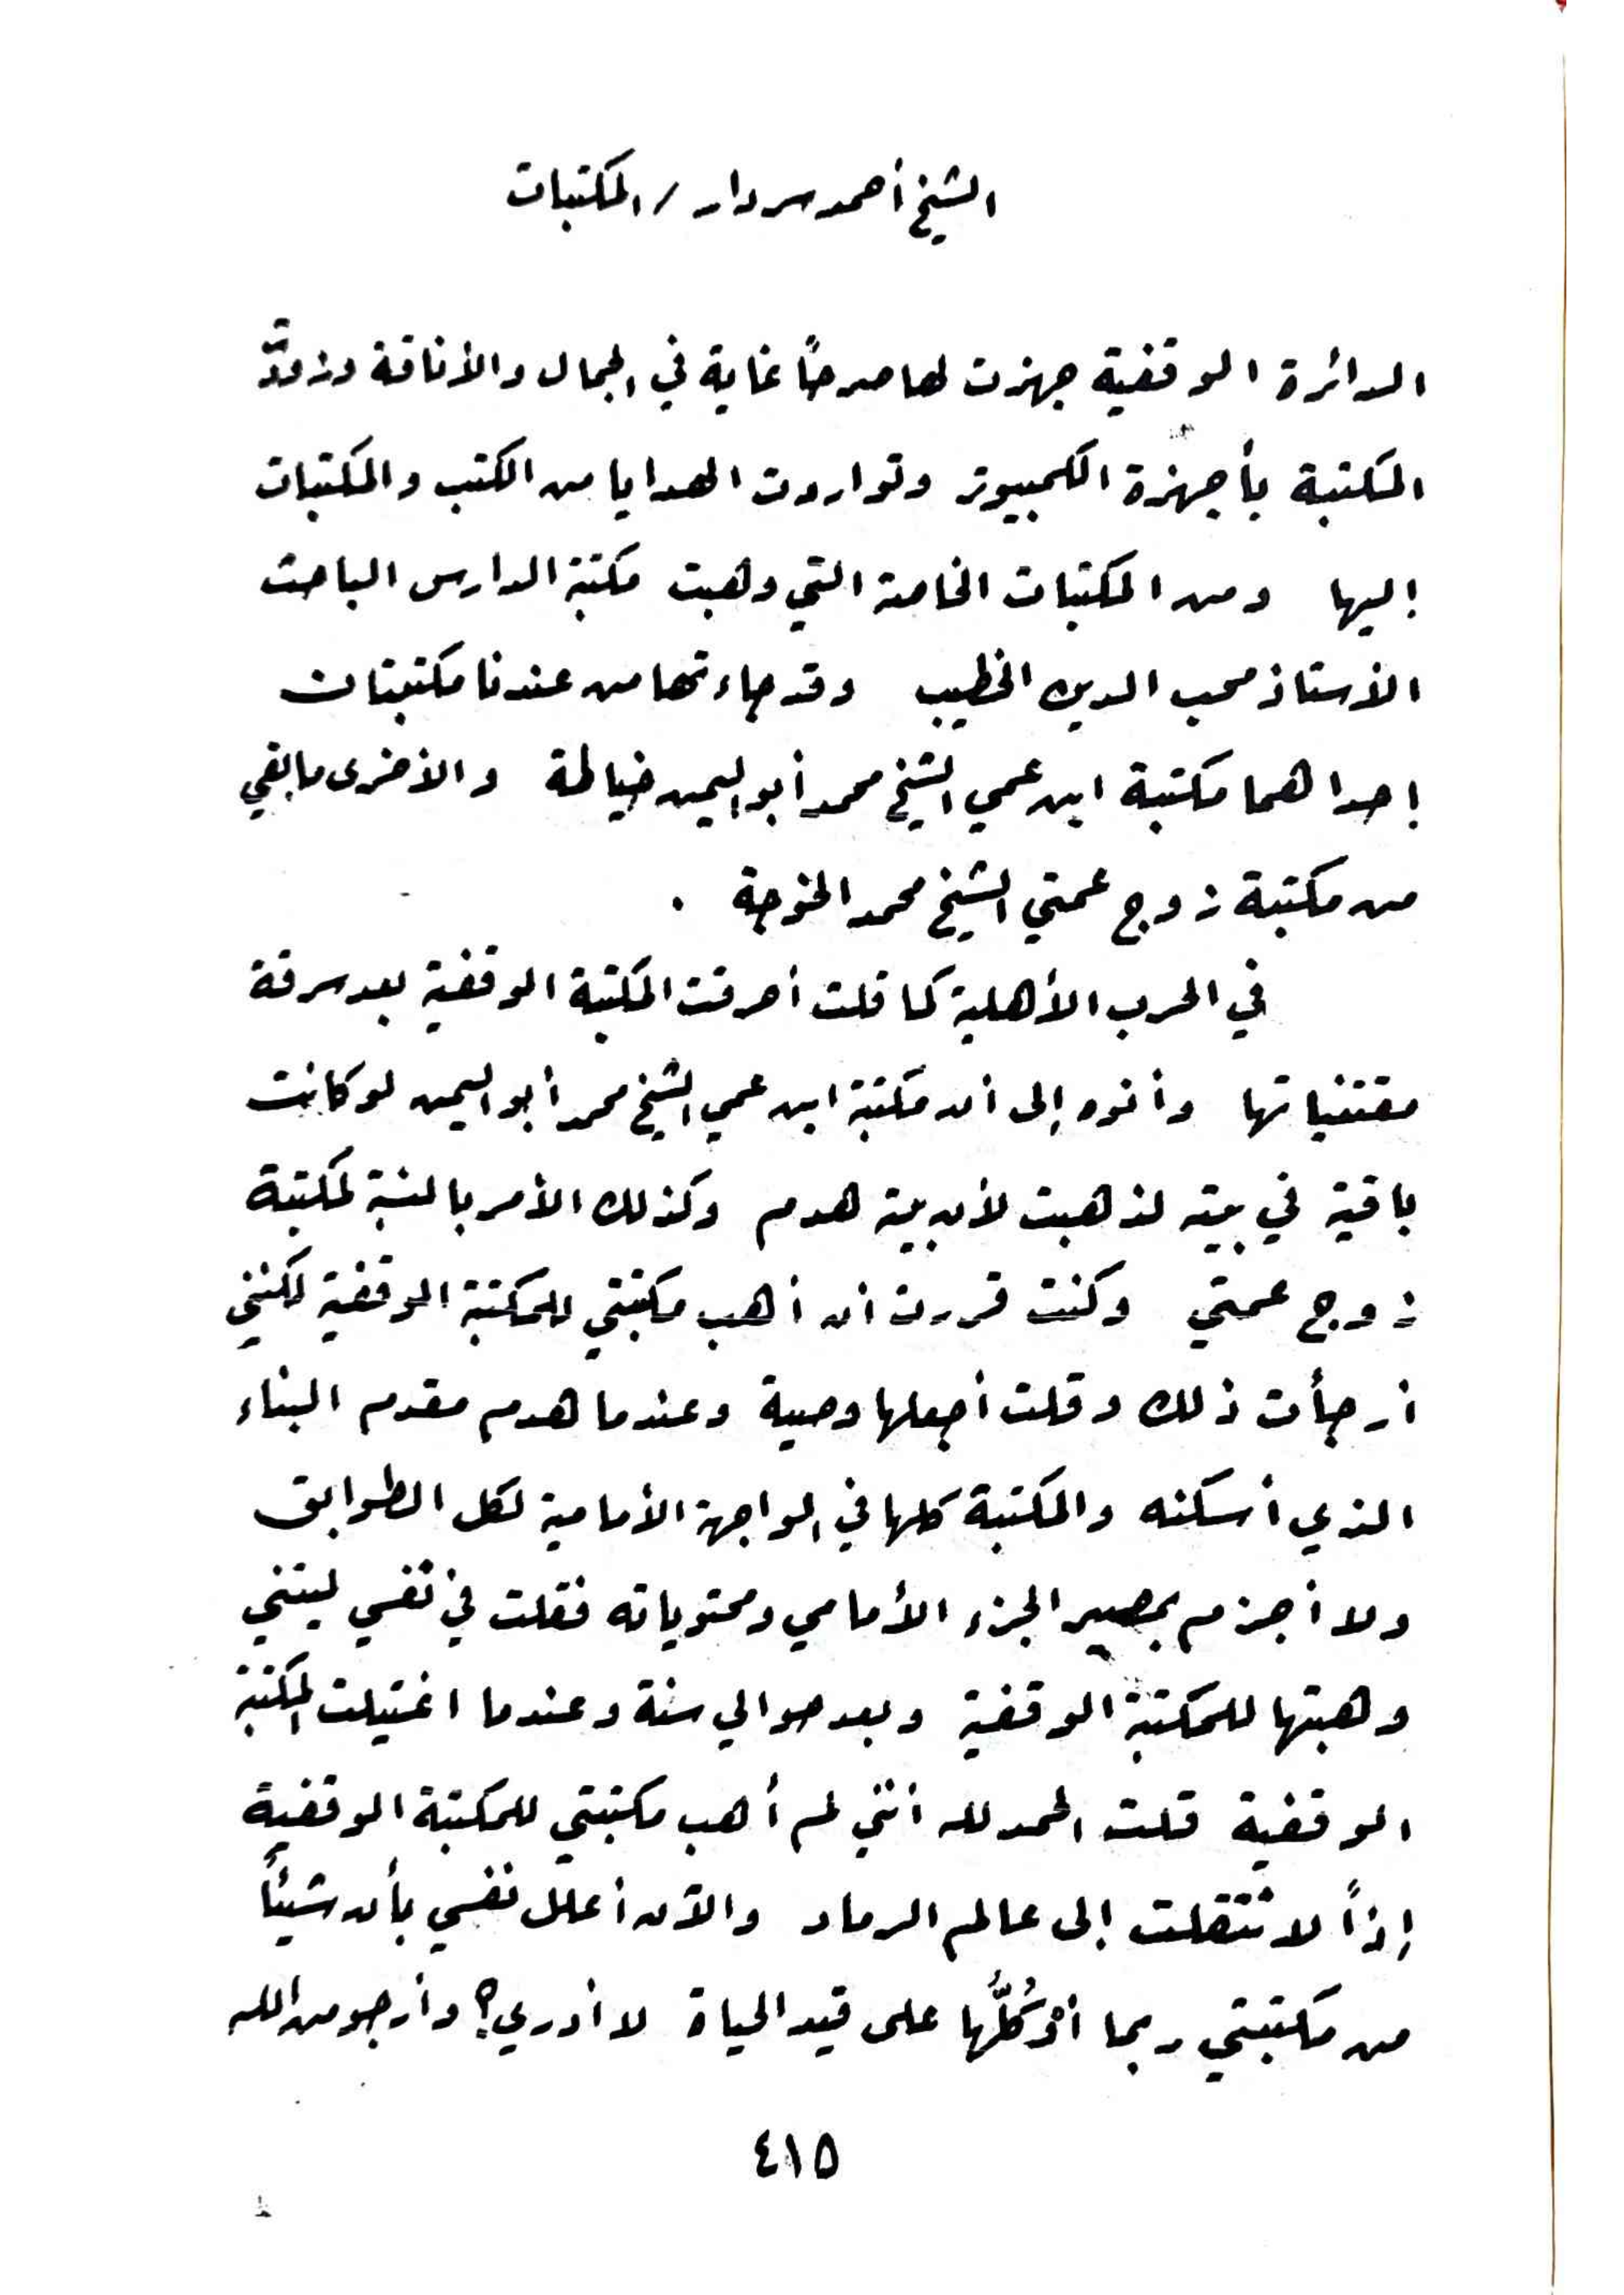 الشيخ أحمد سردار / المكتبات
الدائرة الوقفية جهزت لها صرحاً غاية في الجمال والأناقة وزودت
المكتبة بأجهزة الكمبيوتر وتواردت الهدايا من الكتب والمكتبات
إليها ومن المكتبات الخاصة التي وهبت مكتبة الدارس الباحث
الأستاذ محب الدين الخطيب وقد جاءتها من عندنا مكتبتان
إحداهما مكتبة ابن عمي الشيخ محمد أبو اليمن خياطة والأخرى ما بقي
من مكتبة زوج عمتي الشيخ محمد الخوجة .
في الحرب الأهلية كما قلت أحرقت المكتبة الوقفية بعد سرقة
مقتنياتها وأنوه إلى أن مكتبة ابن عمي الشيخ محمد أبو اليمن لو كانت
باقية في بيته لذهبت لأن بيته هدم وكذلك الأمر بالنسبة لمكتبة
زوج عمتي وكنت قررت أن أهب مكتبتي للمكتبة الوقفية لكنني
أرجأت ذلك وقلت أجعلها وصية وعندما هدم مقدم البناء
الذي أسكنه والمكتبة كلها في الواجهة الأمامية لكل الطوابق
ولا أجزم بمصير الجزء الأمامي ومحتوياته فقلت في نفسي ليتني
وهبتها للمكتبة الوقفية وبعد حوالي سنة وعندما اغتيلت المكتبة
الوقفية قلت الحمد لله أنني لم أهب مكتبتي للمكتبة الوقفية
إذاً لانتقلت إلى عالم الرماد والآن أعلل نفسي بأن شيئاً
من مكتبتي ربما أوْ كُلَّها على قيد الحياة لا أدري؟ وأرجو من الله
٤١٥